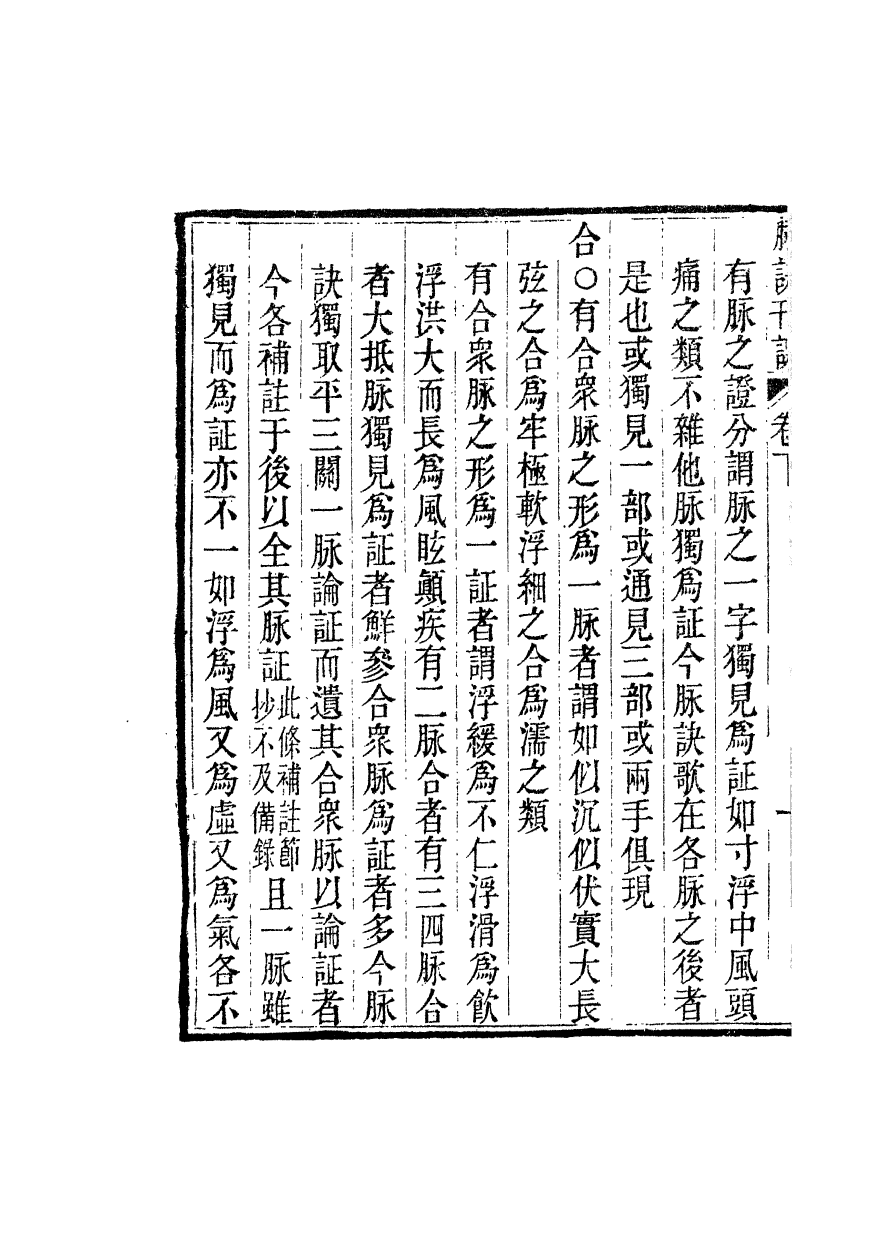 脉訣刊誤 卷下 一
有脉之證分謂脉之一字獨見爲証如寸浮中風頭
痛之類不雜他脉獨爲証今脉訣歌在各脉之後者
是也或獨見一部或通見三部或兩手俱現
合○有合衆脉之形爲一脉者謂如似沉似伏實大長
弦之合爲牢極軟浮細之合爲濡之類
有合衆脉之形爲一証者謂浮緩爲不仁浮滑爲飮
浮洪大而長爲風眩顚疾有二脉合者有三四脉合
者大抵脉獨見爲証者鮮參合衆脉爲証者多今脉
訣獨取平三關一脉論証而遺其合衆脉以論証者
今各補註于後以全其脉証此條補註節抄不及備錄且一脉雖
獨見而爲証亦不一如浮爲風又爲虛又爲氣各不